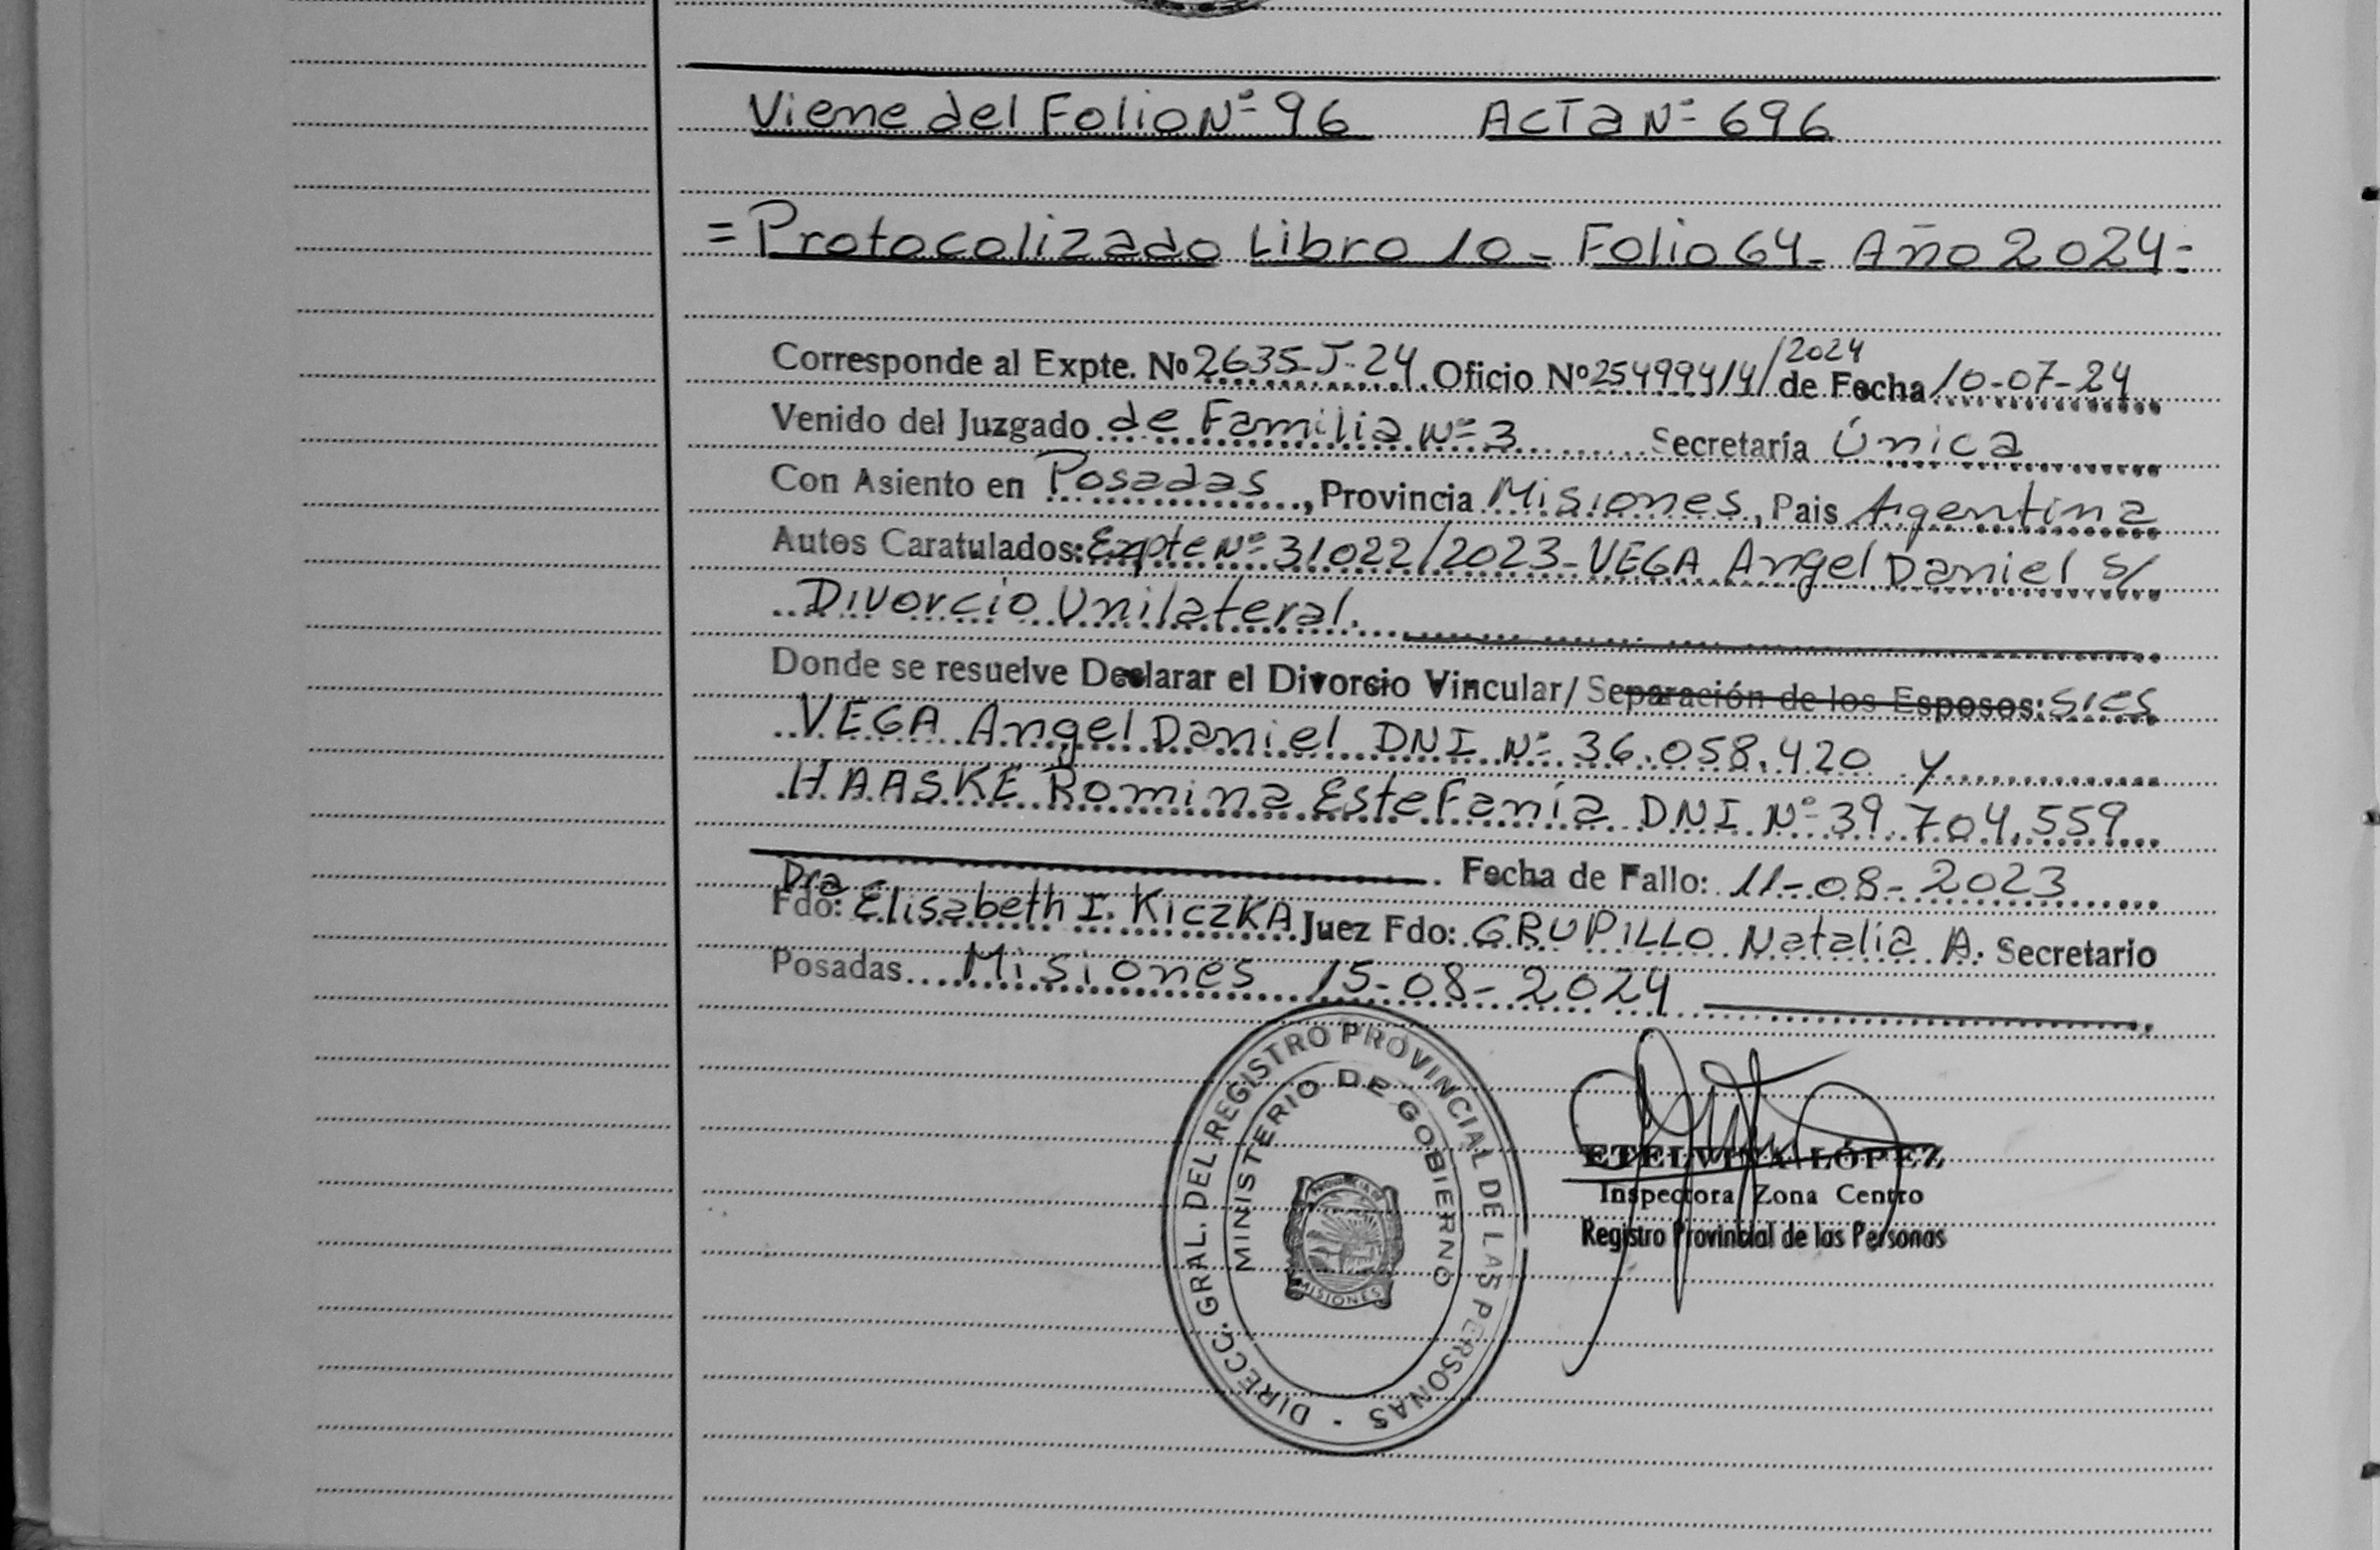 Viene del Folio Nº 96 Acta Nº 696
= Protocolizado Libro 10 - Folio 64 - Año 2024 =
Corresponde al Expte. Nº 2635-J-24 Oficio Nº 25499414/2024 de Fecha 10-07-24
Venido del Juzgado de Familia Nº 3 Secretaría Única
Con Asiento en Posadas, Provincia Misiones, Pais Argentina
Autos Caratulados: Expte Nº 31022/2023 - VEGA Angel Daniel S/
Divorcio Unilateral.
Donde se resuelve Declarar el Divorcio Vincular/ Separación de los Esposos:
VEGA Angel Daniel DNI Nº 36.058.420 y
HAASKE Romina Estefanía DNI Nº 39.704.559
. Fecha de Fallo: 11-08-2023
Fdo: Dra Elisabeth I. KiczKA Juez Fdo: GRUPILLO Natalia A. Secretario
Posadas Misiones 15-08-2024
DIRECC. GRAL. DEL REGISTRO PROVINCIAL DE LAS PERSONAS -
MINISTERIO DE GOBIERNO
PROVINCIA DE
MISIONES
ETELVINA LÓPEZ
Inspectora Zona Centro
Registro Provincial de las Personas